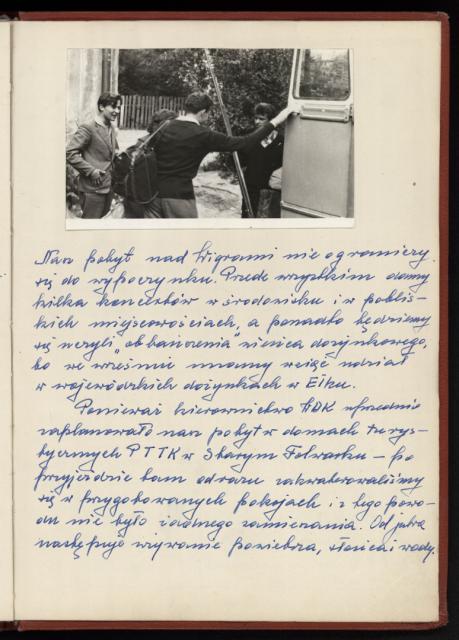 Nasz pobyt nad Wigrami nie ograniczy
się do wypoczynku. Przede wszystkim damy
kilka koncertów w środowisku i w poblis-
kich miejscowościach, a ponadto będziemy
się uczyli „obtańczenia" wieńca dożynkowego,
bo we wrześniu mamy wziąć udział
w wojewódzkich dożynkach w Ełku.
Ponieważ kierownictwo HDK uprzednio
zaplanowało nasz pobyt w domach turys-
tycznych PTTK w Starym Folwarku - po
przyjeździe tam od razu zakwaterowaliśmy
się w przygotowanych pokojach i z tego powo-
du nie było żadnego zamieszania. Od jutra
następuje używanie powietrza, słońca i wody.